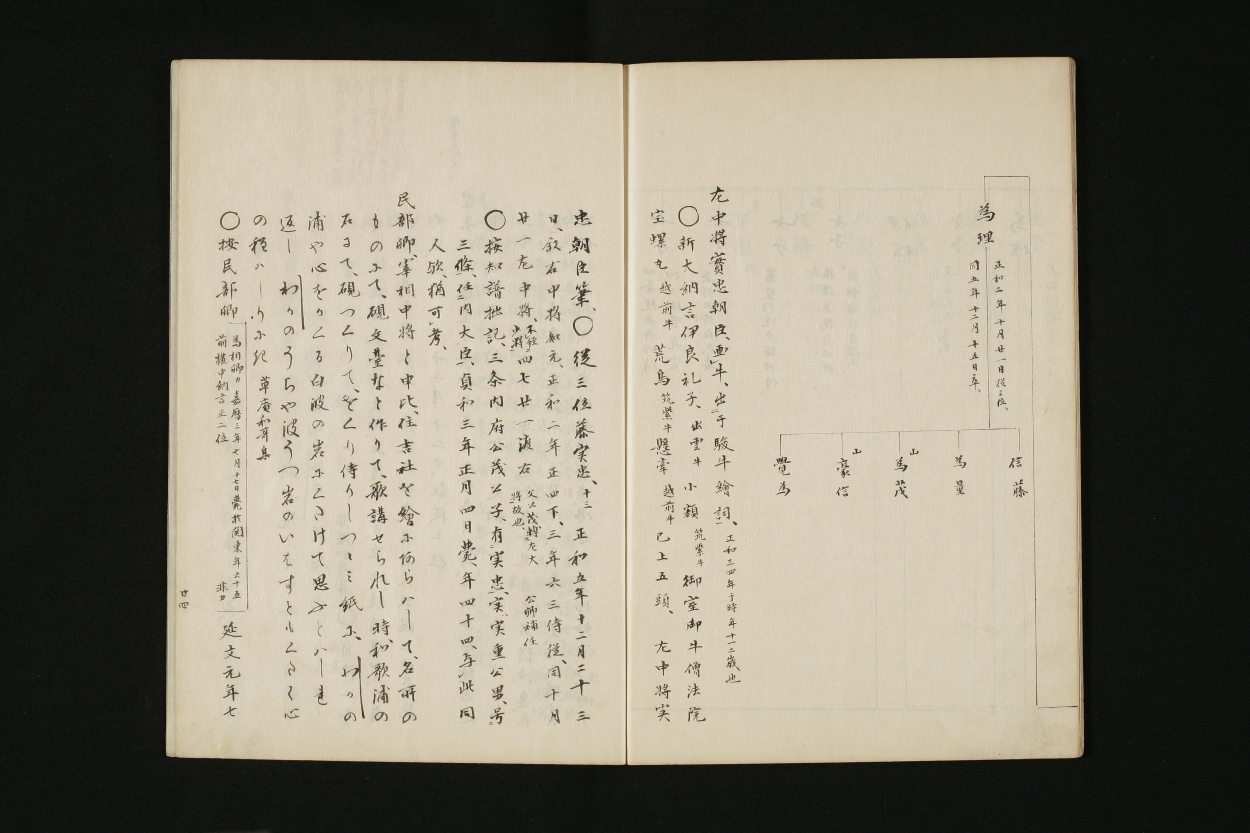 為理
正和二年十月廿一日従三位、
同五年十二月十五日卒、
信藤
為量
山
為茂
山
豪信
覺為
左中将實忠朝臣、画牛、出于駿牛繪詞、
正和三四年于時年十一二歳也
〇新大納言伊良礼子、出雲牛 小額 筑紫牛 御室御牛僧法院
宝螺丸 越前牛 荒鳥 筑紫牛 懸牽 越前牛 已上五頭、左中将実
忠朝臣筆、〇従三位藤実忠、十三 正和五年十二月二十三
日、叙右中将如元、正和二年正四下、三年六三侍従、同十月
廿一左中将、不経少将 四七廿一渡右 父公茂轉左大将故也、 公卿補任
〇按知譜拙記、三条内府公茂公子、有実忠、実、実重公男、号
三條、任内大臣、貞和三年正月四日薨、年四十四、与此同
人欤、猶可考、
民部卿、宰相中将と申比、住吉社を繪にあらはして、名所の
ものにて、硯文臺なと作りて、歌講せられし時、和歌浦の
石にて、硯つくりて、をくり侍りしつゝミ紙に、わかの
浦や心をよくる白波の岩にくたけて思ふとハしれ
返し わかのうらや波うつ岩のいてすともくたく心
の程ハしりにき 草庵和哥集
〇按民部卿
為相卿カ嘉暦三年七月十七日薨於関東年六十五
前権中納言正二位 非カ
延文元年七
廿四